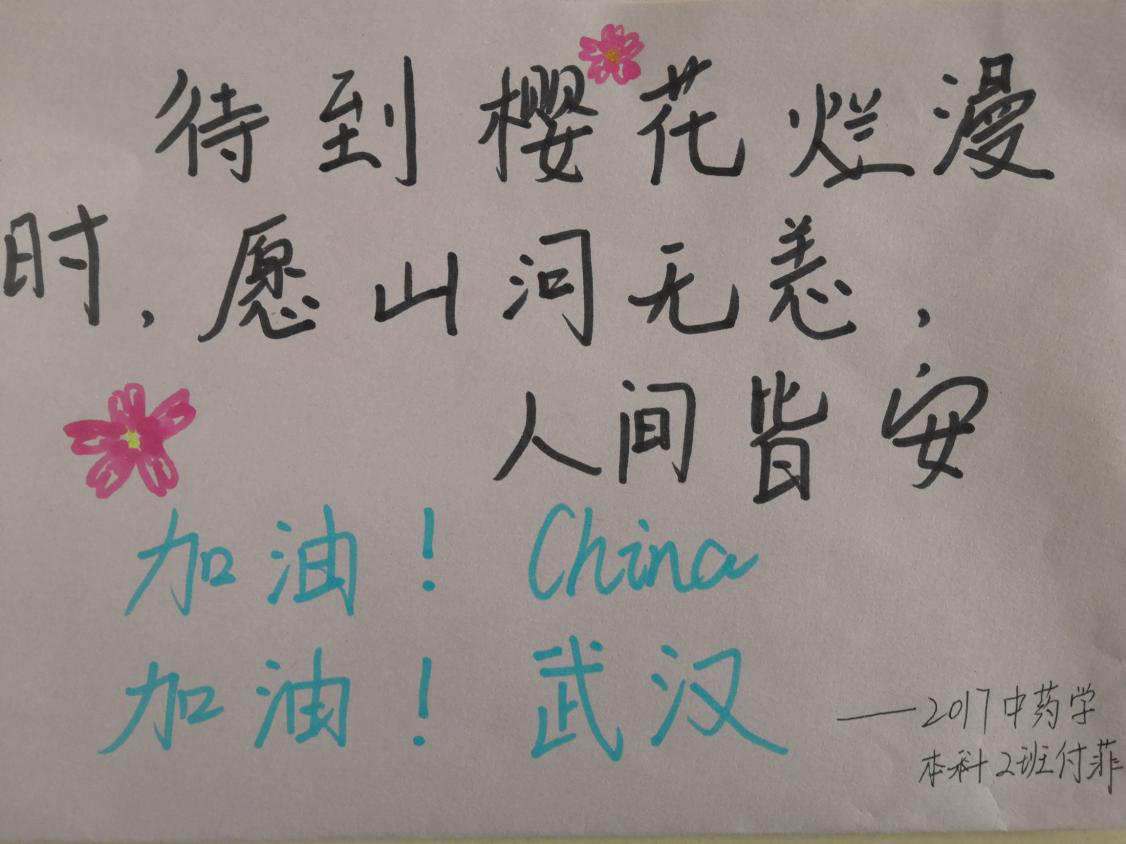 待到樱花烂漫
时,愿山河无恙,
人间皆安
加油!China
加油!武汉
——2017中药学
本科2班付菲